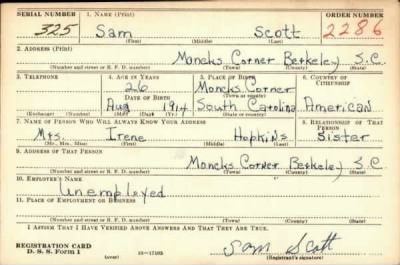 SERIAL NUMBER 1. NAME (Print) ORDER NUMBER
325 Sam Scott 2286
(First) (Middle) (Last)
2. ADDRESS (Print)
Moncks Corner Berkeley S.C.
(Number and street or R. F. D. number) (Town) (County) (State)
3. TELEPHONE 4. AGE IN YEARS 5. PLACE OF BIRTH 6. COUNTRY OF CITIZENSHIP
26 Moncks Corner
DATE OF BIRTH (Town or county)
Aug 1914 South Carolina American
(Exchange) (Number) (Mo.) (Day) (Yr.) (State or country)
7. NAME OF PERSON WHO WILL ALWAYS KNOW YOUR ADDRESS 8. RELATIONSHIP OF THAT PERSON
Mrs. Irene Hopkins Sister
(Mr., Mrs., Miss) (First) (Middle) (Last)
9. ADDRESS OF THAT PERSON
Moncks Corner Berkeley S.C
(Number and street or R. F. D. number) (Town) (County) (State)
10. EMPLOYER'S NAME
Unemployed
11. PLACE OF EMPLOYMENT OR BUSINESS
(Number and street or R. F. D. number) (Town) (County) (State)
I AFFIRM THAT I HAVE VERIFIED ABOVE ANSWERS AND THAT THEY ARE TRUE.
REGISTRATION CARD Sam Scott
D. S. S. Form 1 (over) (Registrant's signature)